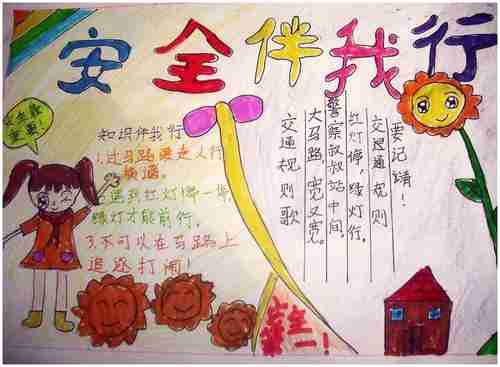 安全伴我行
安全最
重要!
知识伴我行
1.过马路要走人行
横道。
2.遇到红灯停一停,
绿灯才能前行。
3.不可以在马路上
追逐打闹!
交通规则歌
大马路,宽又宽。
警察叔叔站中间,
红灯停,绿灯行。
交通规则
要记清!
安全
第一!